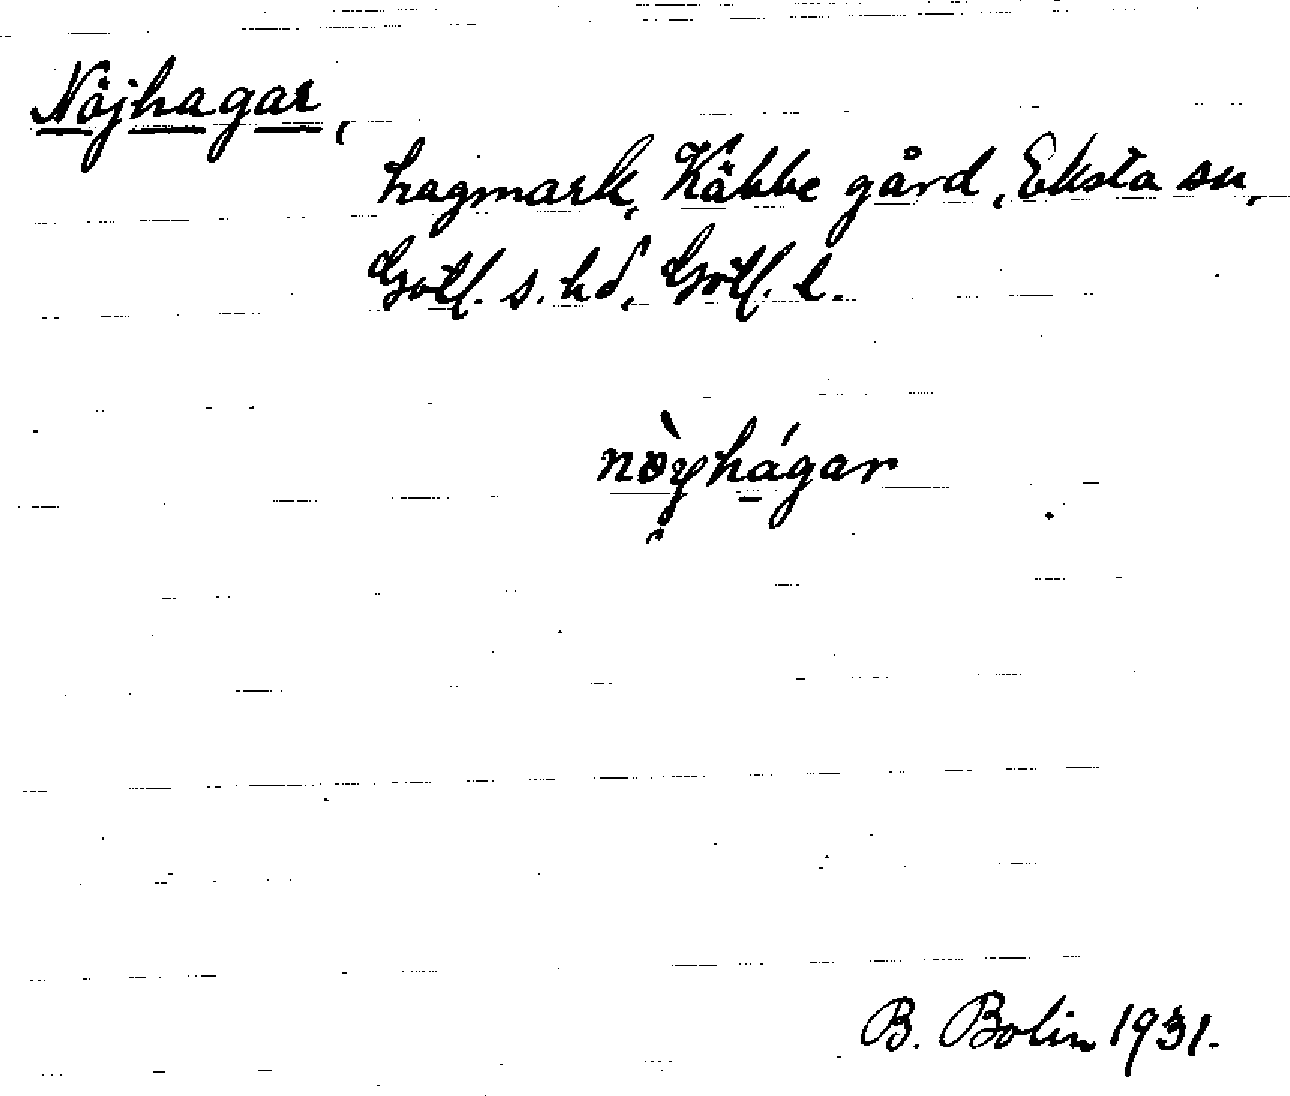 Nöjhagar,
hagmark, Käbbe gård, Eksta sn,
Gotl. s. hd, Gotl. l.
nòyhágar
B. Bolin 1931.